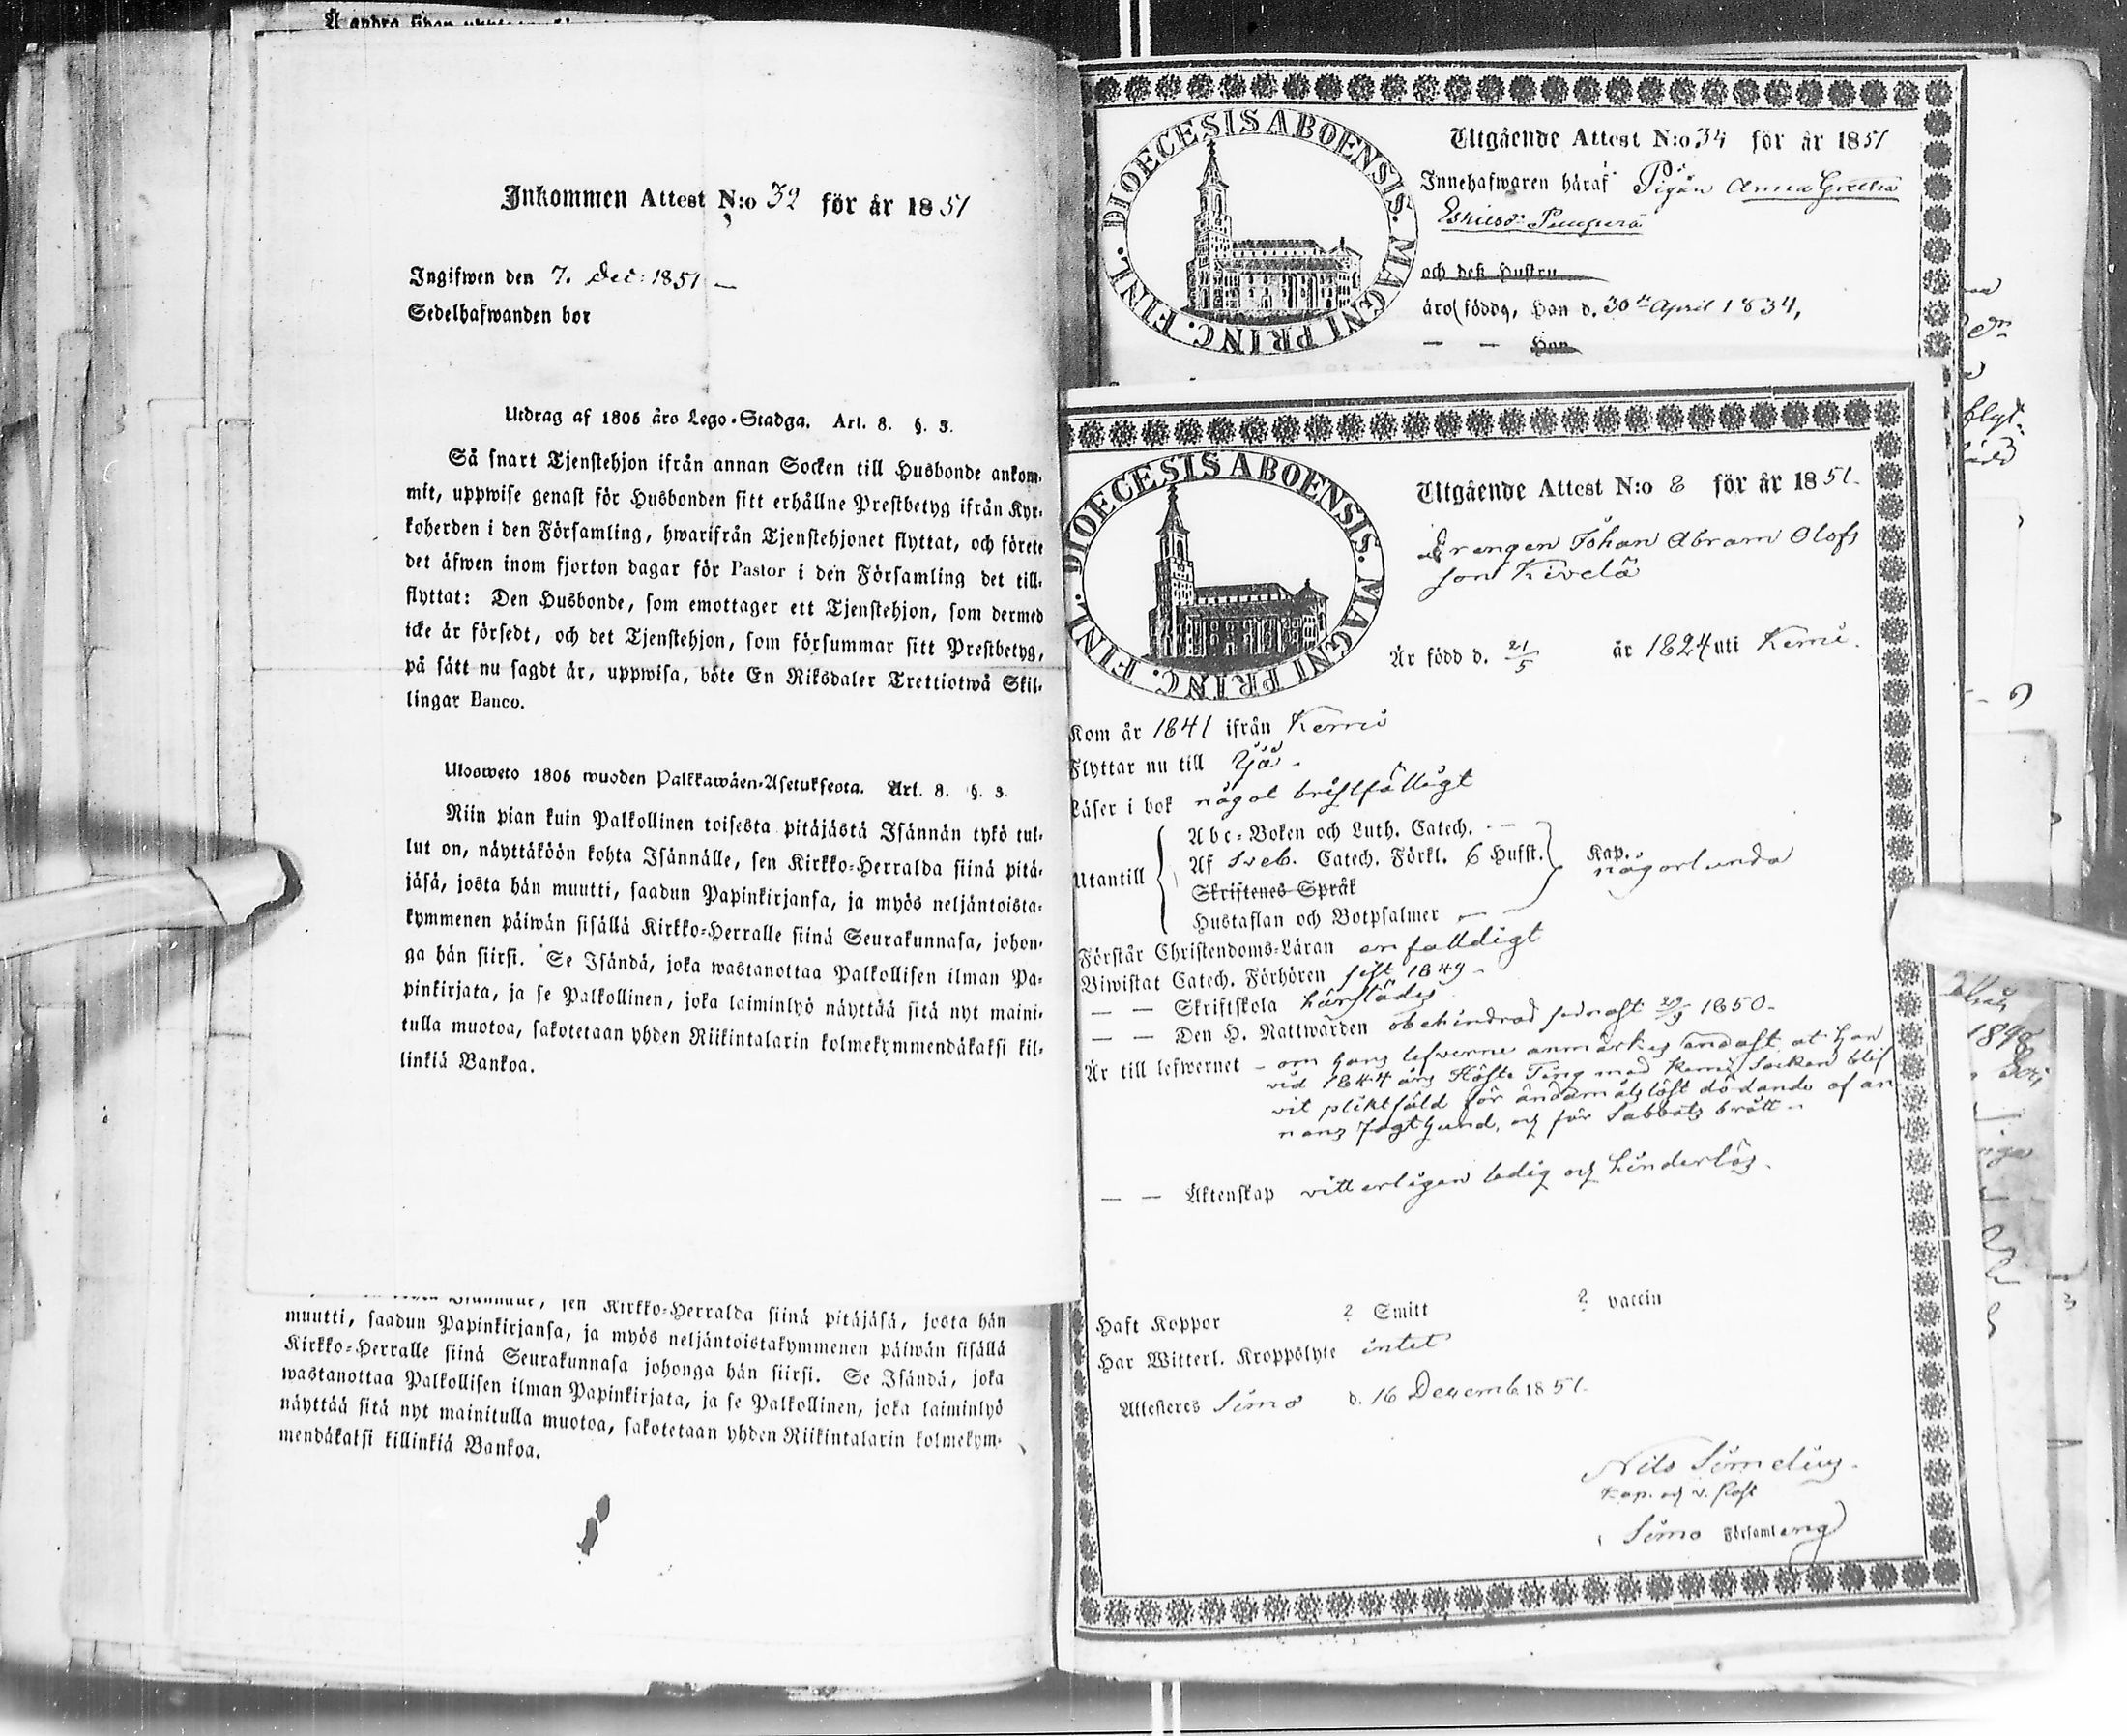 Inkommen Attest N:o 32 för år 1851
Ingifwen den 7. Dec: 1851 —
Sedelhafwanden bor
Utdrag af 1805 års Lego-Stadga. Art. 8. §. 3.
Så snart Tjenstehjon ifrån annan Socken till Husbonde ankom-
mit, uppwise genast för Husbonden sitt erhållne Prestbetyg ifrån Kyr-
koherden i den Församling, hwarifrån Tjenstehjonet flyttat, och förete
det äfwen inom fjorton dagar för Pastor i den Församling det till-
flyttat: Den Husbonde, som emottager ett Tjenstehjon, som dermed
icke är försedt, och det Tjenstehjon, som försummar sitt Prestbetyg,
på sätt nu sagdt är, uppwisa, böte En Riksdaler Trettiotwå Skil-
lingar Banco.
Ulosweto 1805 wuoden Palkkawäen-Asetuksesta. Art. 8. §. 3.
Niin pian kuin Palkollinen toisesta pitäjästä Isännän tykö tul-
lut on, näyttäköön kohta Isännälle, sen Kirkko-Herralda siinä pitä-
jäsä, josta hän muutti, saadun Papinkirjansa, ja myös neljäntoista-
kymmenen päiwän sisällä Kirkko-Herralle siinä Seurakunnasa, johon-
ga hän siirsi. Se Isändä, joka wastanottaa Palkollisen ilman Pa-
pinkirjata, ja se Palkollinen, joka laiminlyö näyttää sitä nyt maini-
tulla muotoa, sakotetaan yhden Riikintalarin kolmekymmendäkaksi kil-
linkiä Bankoa.
sen Kirkko-Herralda siinä pitäjäsä, josta hän
muutti, saadun Papinkirjansa, ja myös neljäntoistakymmenen päiwän sisällä
Kirkko-Herralle siinä Seurakunnasa johonga hän siirsi. Se Isändä, joka
wastanottaa Palkollisen ilman Papinkirjata, ja se Palkollinen, joka laiminlyö
näyttää sitä nyt mainitulla muotoa, sakotetaan yhden Riikintalarin kolmekym-
mendäkaksi killinkiä Bankoa.
DIOECESIS ABOENSIS. MAGNI PRINC. FINL.
Utgående Attest N:o 34 för år 1851
Innehafwaren häraf Pigan Anna Greta
och deß Hustru
äro födda, Han d. 30de April 1834,
— — Hon
DIOECESIS ABOENSIS. MAGNI PRINC. FINL.
Utgående Attest N:o 8 för år 1851.
Drengen Johan Abram Olofs
son Kivelä
Är född d. 21/5 år 1824 uti Kemi.
Kom år 1841 ifrån Kemi
Flyttar nu till Ijå.
Läser i bok något bristfälligt
Utantill
Abc-Boken och Luth. Catech. —
Af Sveb. Catech. Förkl. 6 Hufst. Kap.
någorlunda
Skriftenes Språk
Hustaflan och Botpsalmer —
Förstår Christendoms-Läran enfalldigt
Biwistat Catech. Förhören sist 1849 -
— — Skriftskola härstädes
— — Den H. Nattwarden obehindrad sednast 29/9 1850.
Är till lefwernet - om hans lefverne anmärkes endast at han
vid 1844 års Höste Ting med Kemi Socken blif
vit pliktfäld för ändamålslöst dödande af an
nans Jagthund, och för Sabbats brått -
— — Äktenskap vitterligen ledig och hinderlös.
Haft Koppor ? Smitt ? vaccin
Har Witterl. Kroppslyte intet
Attesteres Simo d. 16 Decemb 1851.
Nils Simelius.
Kap. och v. Past
i Simo Församling